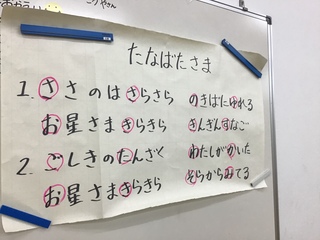 たなばたさま
1. ささのは さらさら のきばにゆれる
お星さま きらきら きんぎんすなご
2. ごしきのたんざく わたしがかいた
お星さま きらきら そらからみてる